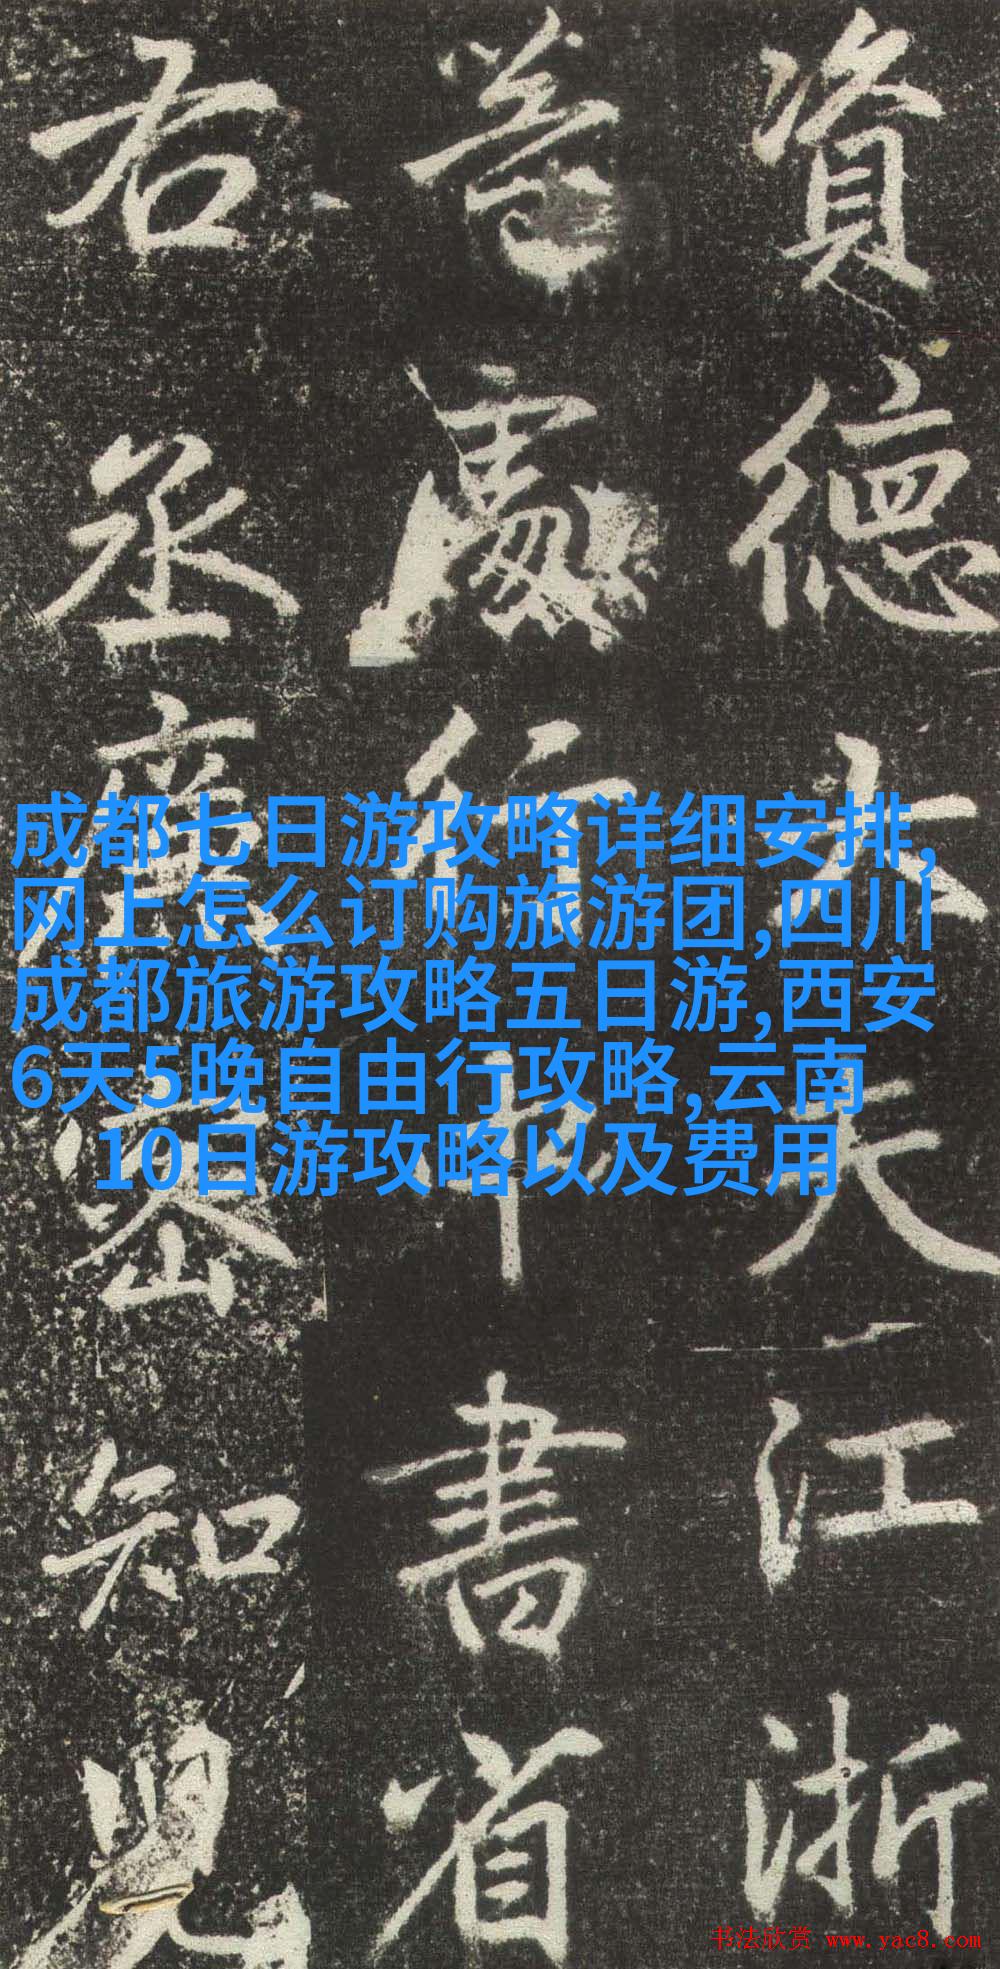 資德大夫江浙
等處行中書省
右丞塵密知見
成都七日游攻略详细安排,
网上怎么订购旅游团,四川
成都旅游攻略五日游,西安
6天5晚自由行攻略,云南
10日游攻略以及费用
书法欣赏 www.yac8.com